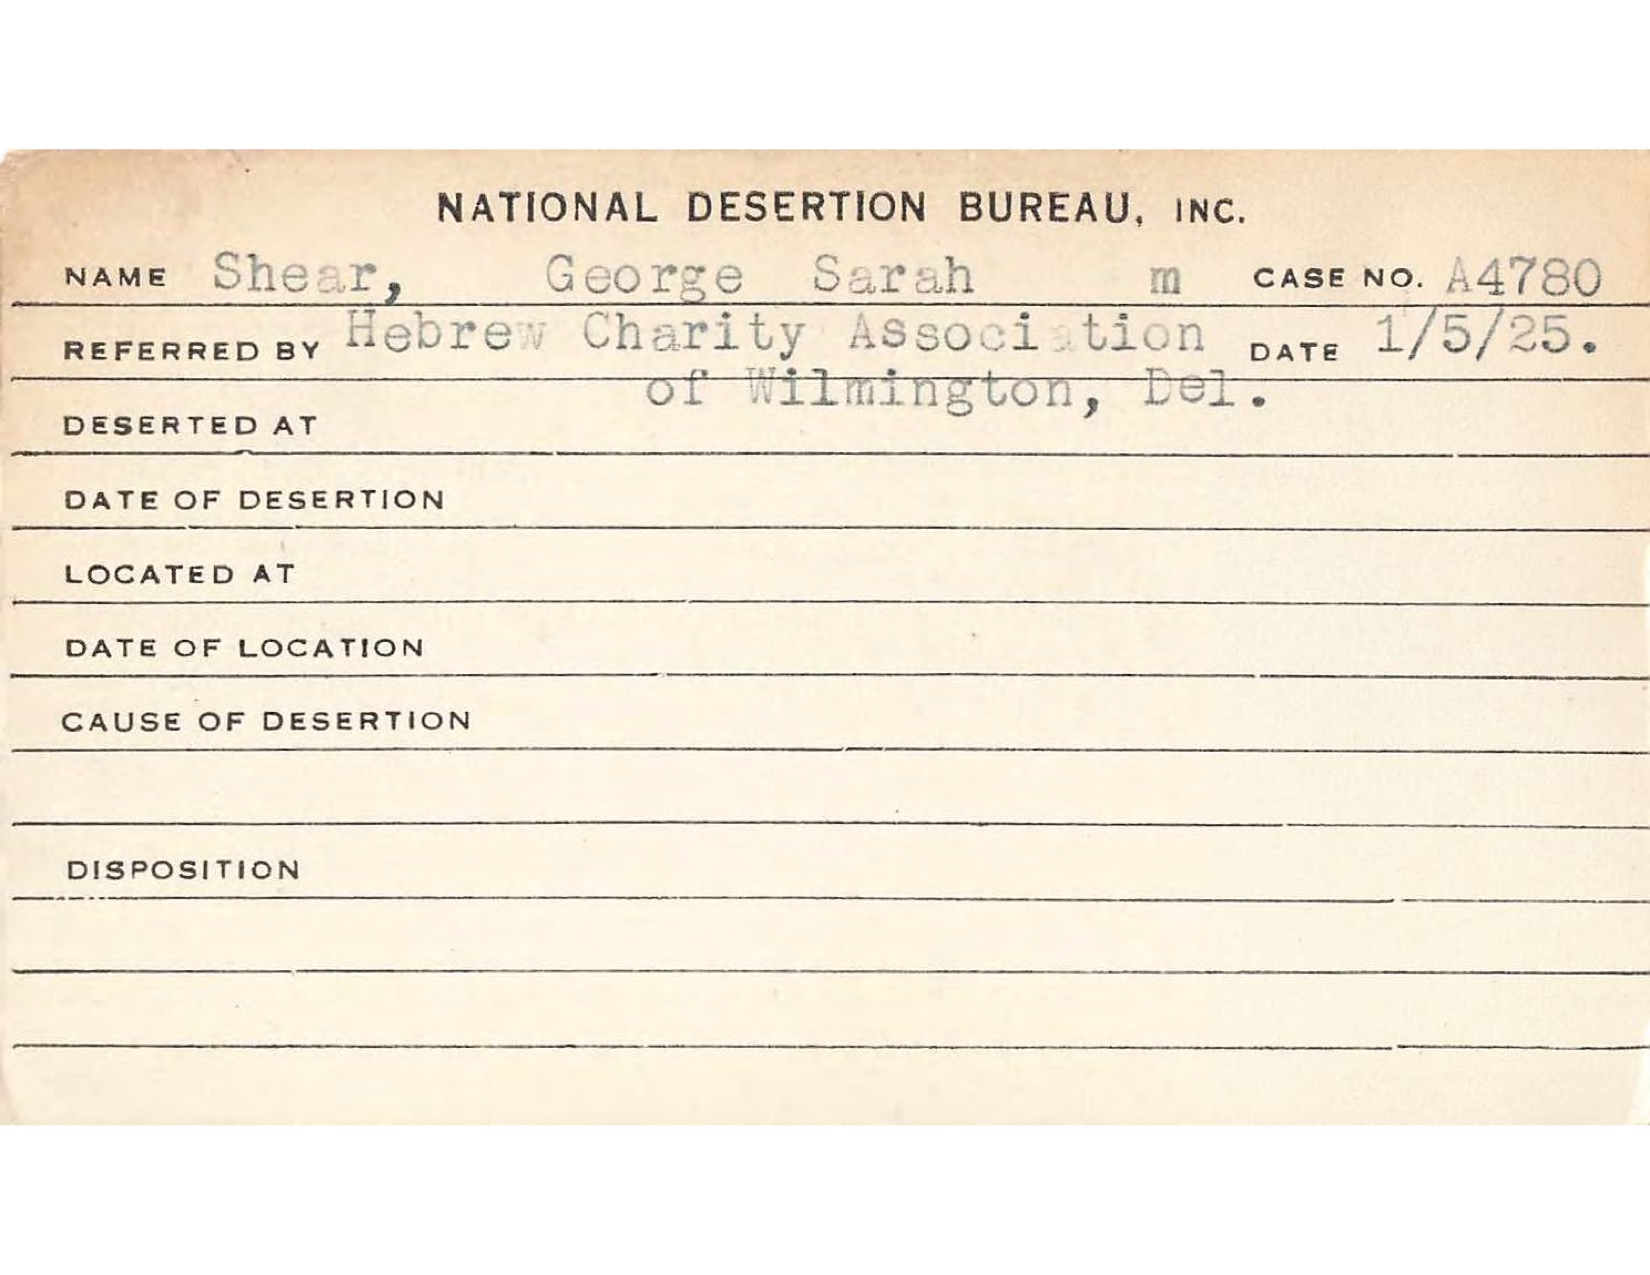 NATIONAL DESERTION BUREAU, INC.
NAME Shear, George Sarah m CASE NO. A4780
REFERRED BY Hebrew Charity Association DATE 1/5/25.
of Wilmington, Del.
DESERTED AT
DATE OF DESERTION
LOCATED AT
DATE OF LOCATION
CAUSE OF DESERTION
DISPOSITION